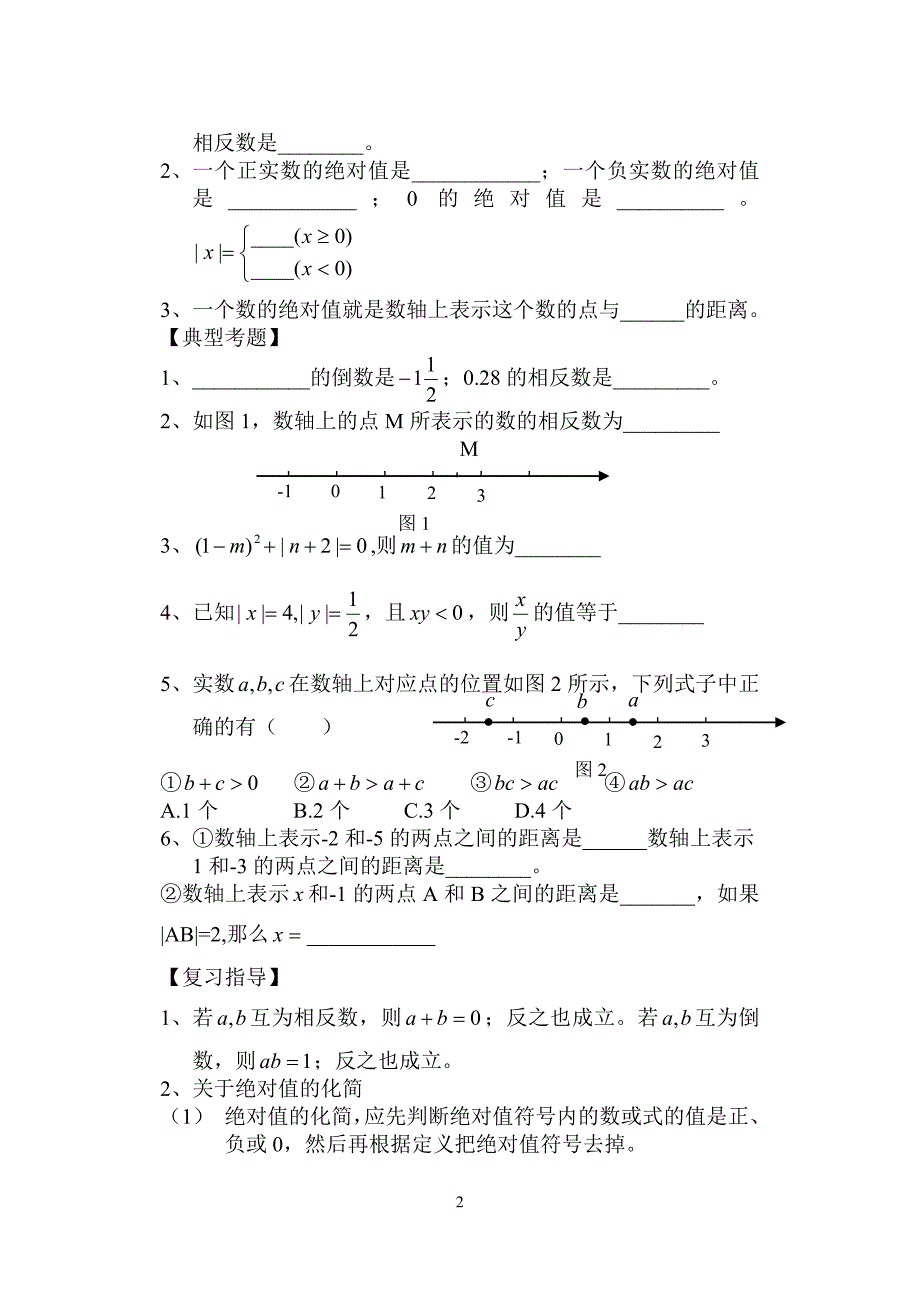 相反数是________。
2、一个正实数的绝对值是____________；一个负实数的绝对值
是____________；0 的绝对值是__________。
|x|={____(x≥0)
____(x<0)
3、一个数的绝对值就是数轴上表示这个数的点与______的距离。
【典型考题】
1、___________的倒数是 -1 1/2；0.28 的相反数是_________。
2、如图 1，数轴上的点 M 所表示的数的相反数为_________
M
-1 0 1 2 3
图 1
3、(1-m)²+|n+2|=0,则 m+n 的值为________
4、已知|x|=4,|y|=1/2，且 xy<0，则 x/y 的值等于________
5、实数 a,b,c 在数轴上对应点的位置如图 2 所示，下列式子中正
确的有（ ）
c b a
-2 -1 0 1 2 3
图 2
①b+c>0 ②a+b>a+c ③bc>ac ④ab>ac
A.1 个 B.2 个 C.3 个 D.4 个
6、①数轴上表示-2 和-5 的两点之间的距离是______数轴上表示
1 和-3 的两点之间的距离是________。
②数轴上表示 x 和-1 的两点 A 和 B 之间的距离是_______，如果
|AB|=2,那么 x = ____________
【复习指导】
1、若 a,b 互为相反数，则 a+b=0；反之也成立。若 a,b 互为倒
数，则 ab=1；反之也成立。
2、关于绝对值的化简
（1） 绝对值的化简，应先判断绝对值符号内的数或式的值是正、
负或 0，然后再根据定义把绝对值符号去掉。
2